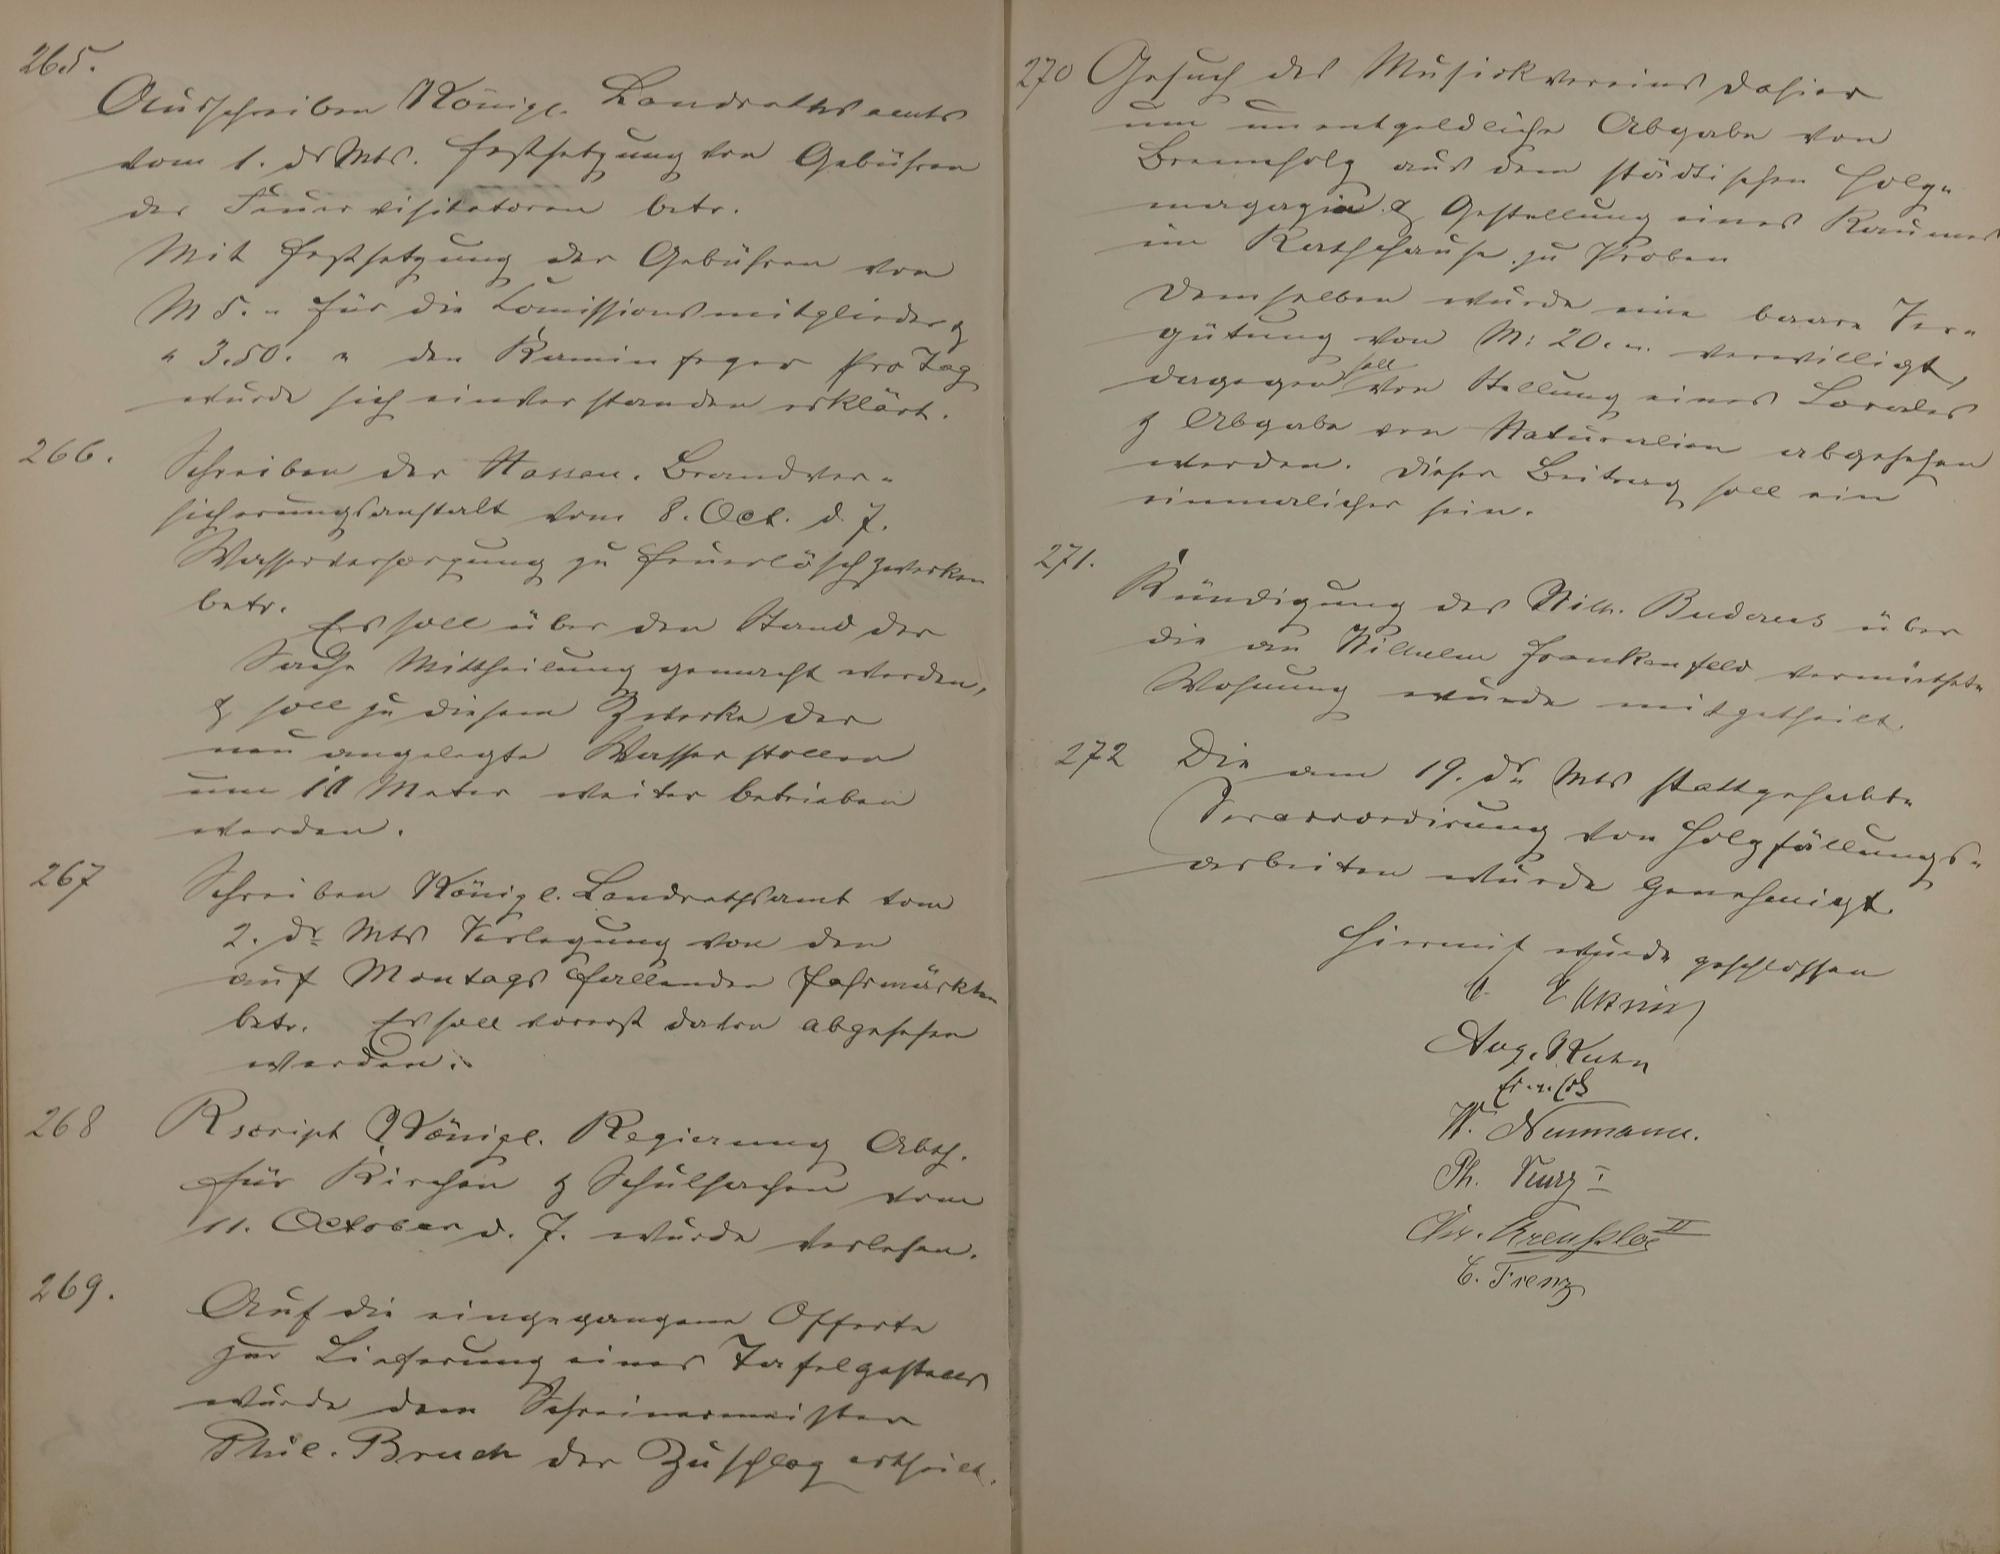 265.
Ausschreiben Königl. Landrathsamts
vom 1. ds Mts. Festsetzung von Gebühren
der Feuervisitatoren betr.
Mit Festsetzung der Gebühren von
M 5. „ für die Comissionsmitglieder &
„ 3.50. „ den Kaminfeger pro Tag
wurde sich einverstanden erklärt.
266.
Schreiben der Nassau. Brandver-
sicherungsanstalt vom 8. Oct. d. J.
Wasserversorgung zu Feuerlöschzwecken
betr.
Es soll über den Stand der
Sache Mittheilung gemacht werden,
& soll zu diesem Zwecke der
neu angelegte Wasserstollen
um 10 Meter weiter betrieben
werden.
267
Schreiben Königl. Landrathsamt vom
2. ds Mts Verlegung von den
auf Montags fallenden Jahrmärkten
betr. Es soll vorerst davon abgesehen
werden.
268
Rscript Königl. Regierung Abth.
für Kirchen & Schulsachen vom
11. October d. J. wurde verlesen.
269.
Auf die eingegangene Offerte
zur Lieferung eines Tafelgestells
wurde dem Schreinermeister
Phil. Bruch der Zuschlag ertheilt.
270 Gesuch des Musickvereins dahier
um unentgeldliche Abgabe von
Brennholz aus dem städtischen Holz-
magazin & Gestellung eines Raumes
im Rathhause zu Proben
Demselben wurde eine baare Ver-
gütung von M: 20.„. verwilligt,
dagegen soll von Stellung eines Locales
& Abgabe von Naturalien abgesehen
werden. Dieser Beitrag soll ein
einmalicher sein.
271.
Kündigung des Wilh. Buderus über
die an Wilhelm Frankenfeld vermiethete
Wohnung wurde mitgetheilt.
272 Die am 19. ds Mts stattgehabte
Veraccordirung von Holzfällungs-
arbeiten wurde genehmigt.
Hiermit wurde geschlossen
Aug. Kuhn
W. Neumann.
Ph. Kurz I
Chr. Kreuzler II
C. Frenz